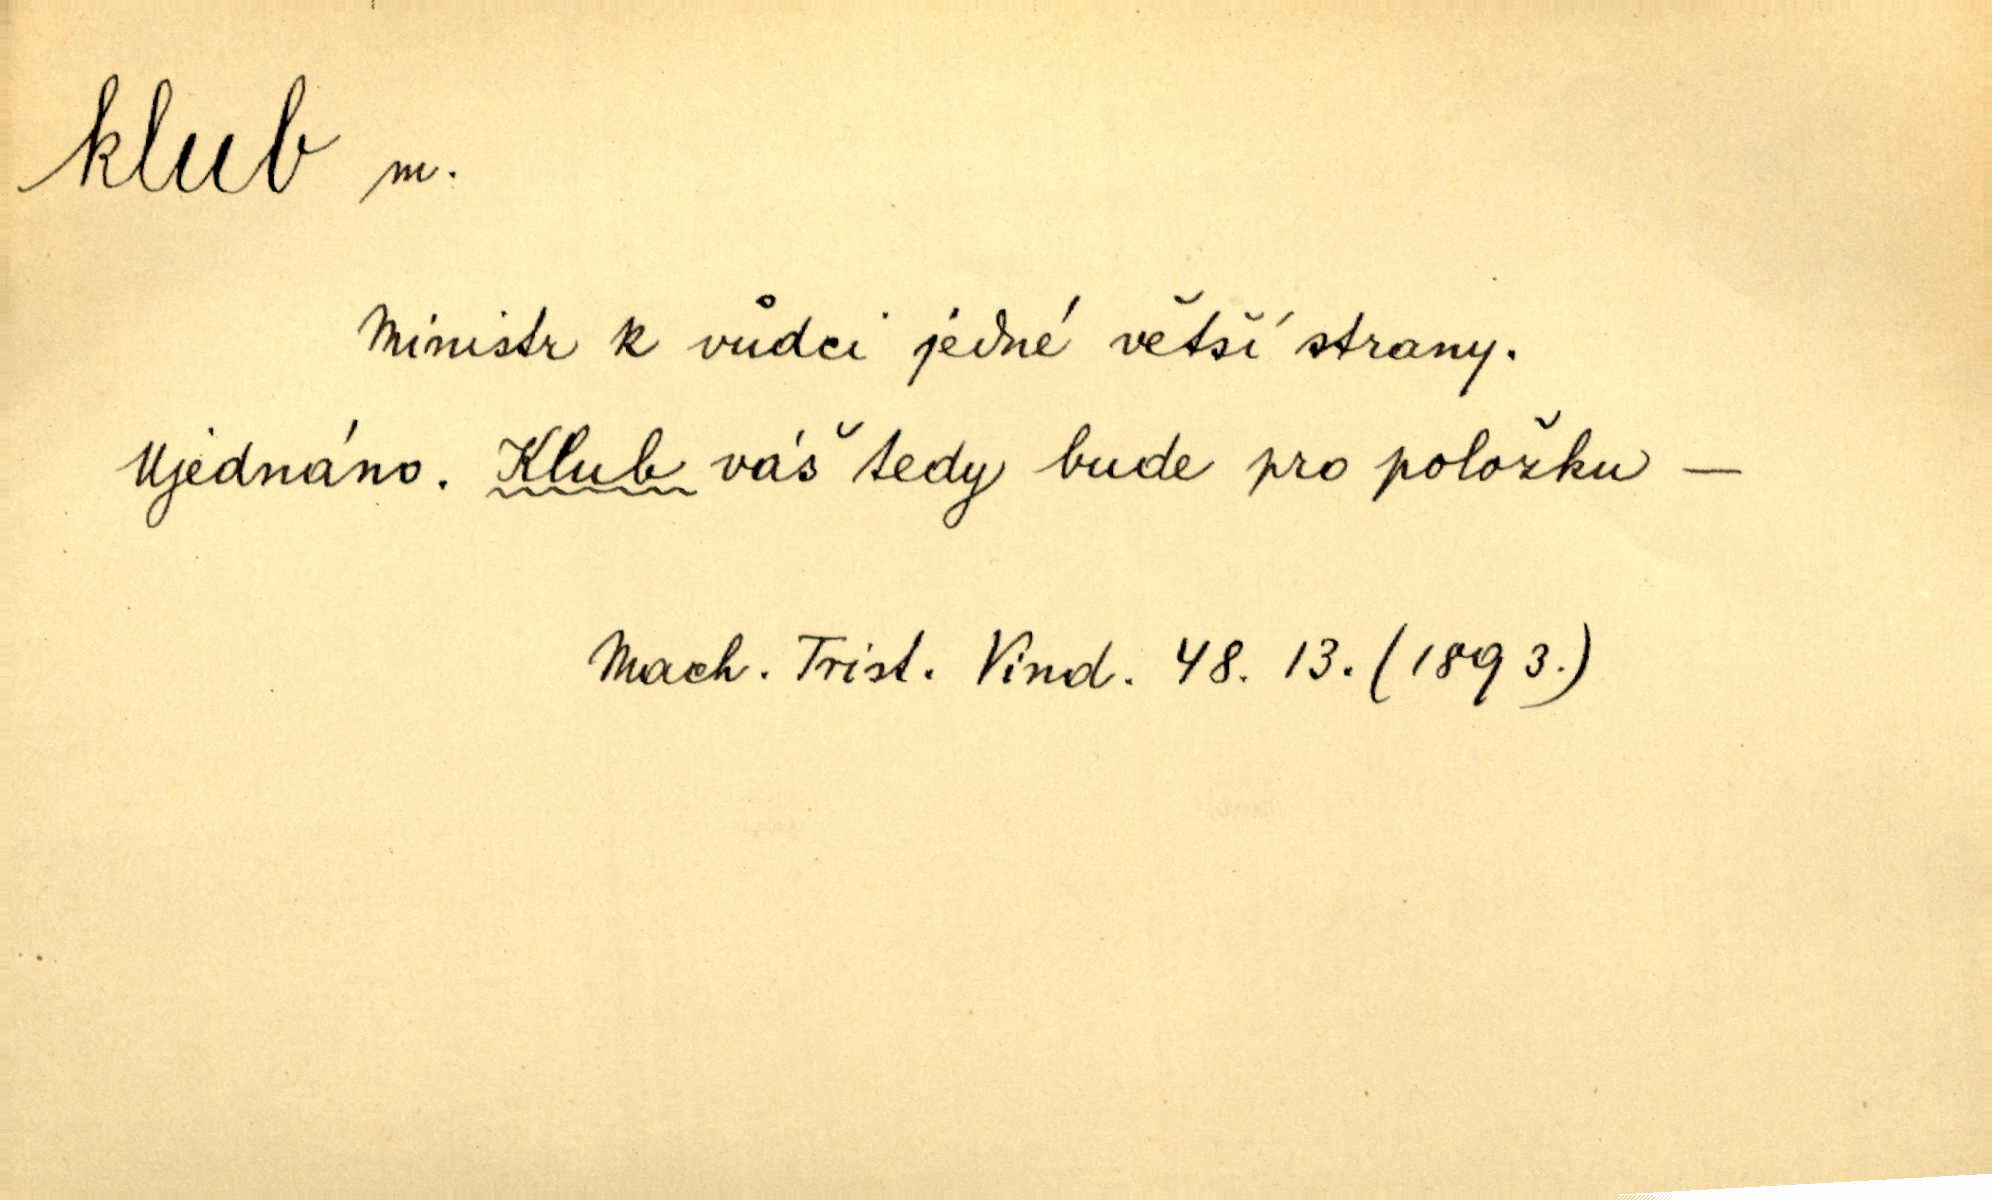 klub m.
Ministr k vůdci jedné větší strany.
Ujednáno. Klub váš tedy bude pro položku —
Mach. Trist. Vind. 48. 13. (1893.)